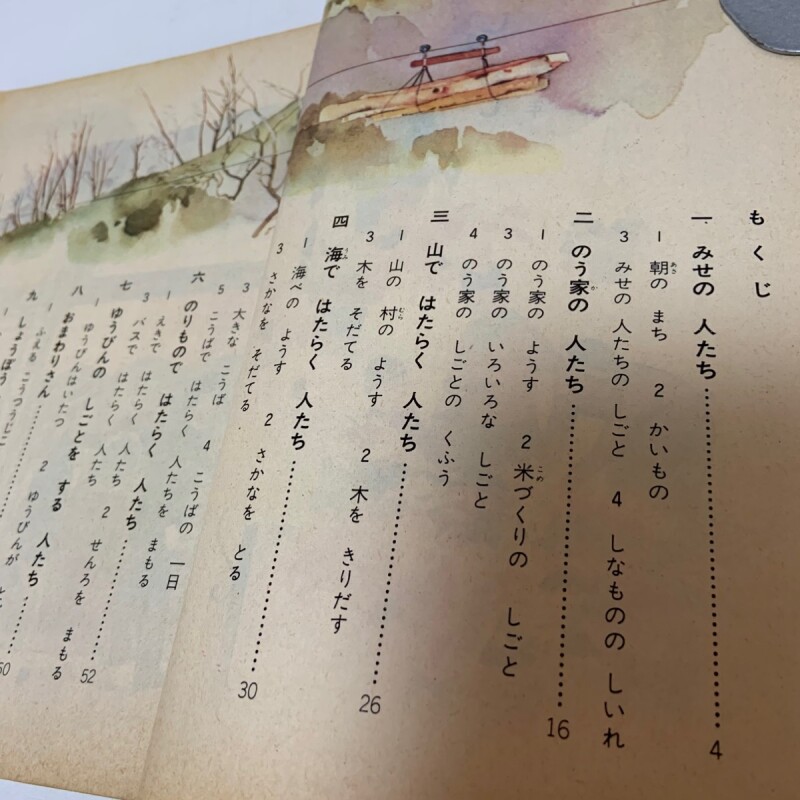 もくじ
一 みせの 人たち…………4
1 朝の まち 2 かいもの
3 みせの 人たちの しごと 4 しなものの しいれ
二 のう家の 人たち…………16
1 のう家の ようす 2 米づくりの しごと
3 のう家の いろいろな しごと
4 のう家の しごとの くふう
三 山で はたらく 人たち…………26
1 山の 村の ようす 2 木を きりだす
3 木を そだてる
四 海で はたらく 人たち…………30
1 海べの ようす 2 さかなを とる
3 さかなを そだてる
3 大きな こうば 4 こうばの 一日
5 こうばで はたらく 人たちを まもる
六 のりもので はたらく 人たち…………52
1 えきで はたらく 人たち 2 せんろを まもる
3 バスで はたらく 人たち
七 ゆうびんの しごとを する 人たち…………
1 ゆうびんはいたつ 2 ゆうびんが
八 おまわりさん…………50
1 ふえる こうつうじこ
九 しょうぼう